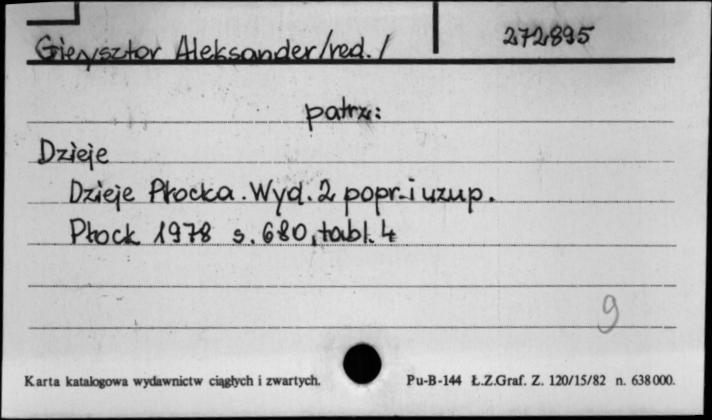 Gieysztor Aleksander /red./ 272895
patrz:
Dzieje
Dzieje Płocka. Wyd. 2 popr. i uzup.
Płock 1978 s. 680, tabl. 4
9
Karta katalogowa wydawnictw ciągłych i zwartych. Pu-B-144 Ł.Z.Graf. Z. 120/15/82 n. 638000.